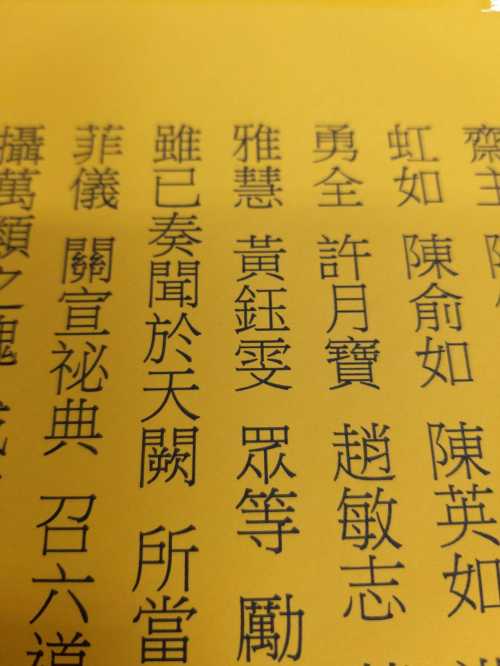 齋主
虹如 陳俞如 陳英如
勇全 許月寶 趙敏志
雅慧 黃鈺雯 眾等 勵
雖已奏聞於天闕 所當
菲儀 關宣祕典 召六道
攝萬類之魂